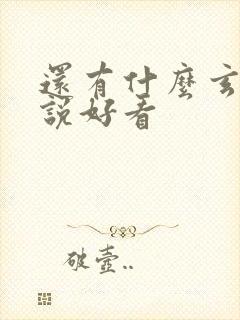 還有什麼玄
說好看
破壺..